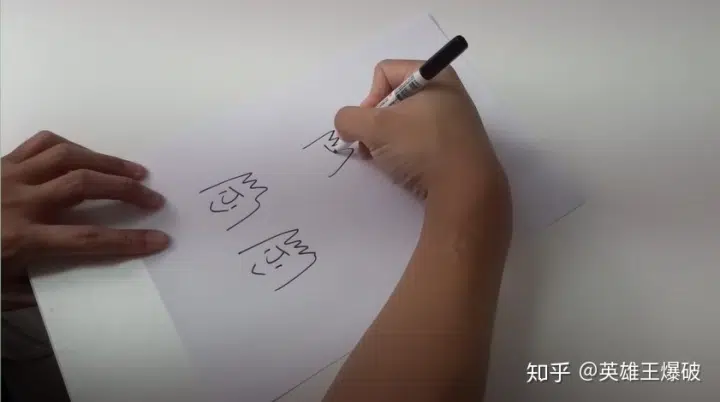 知乎 @英雄王爆破